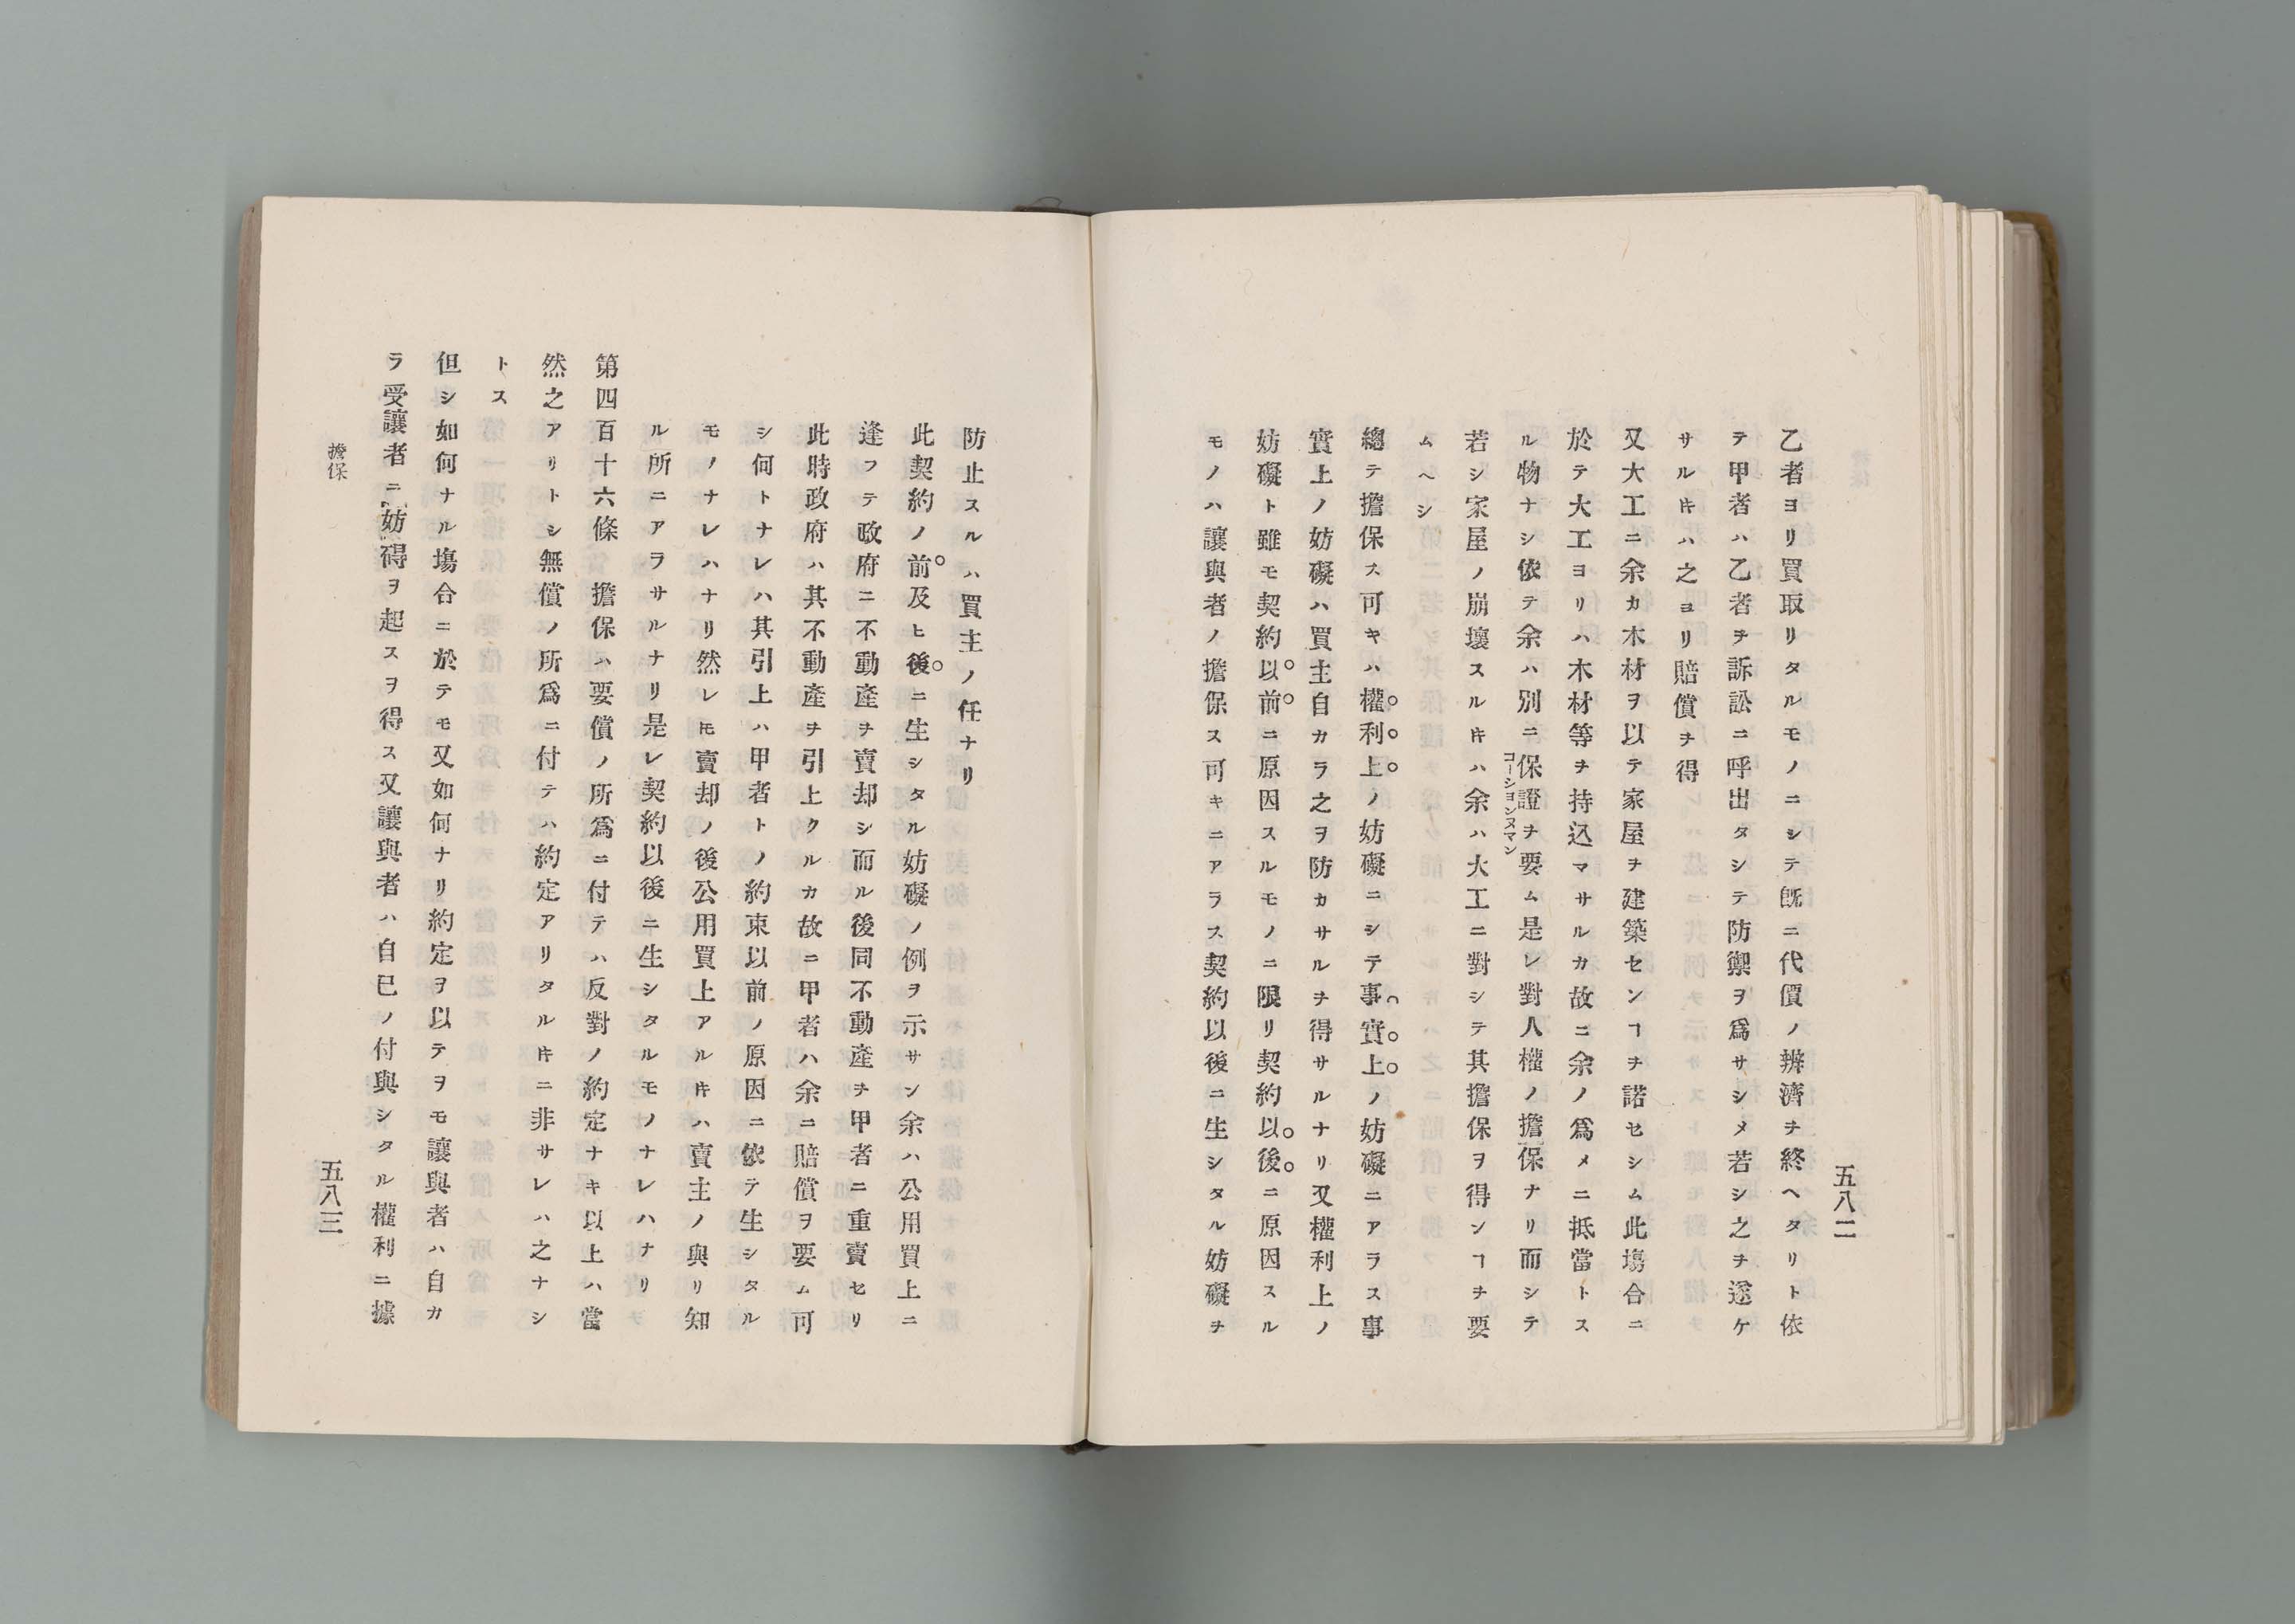 五八二
乙者ヨリ買取リタルモノニシテ旣ニ代價ノ辨濟ヲ終ヘタリト依
テ甲者ハ乙者ヲ訴訟ニ呼出タシテ防禦ヲ爲サシメ若シ之ヲ遂ケ
サル𪜈ハ之ヨリ賠償ヲ得
又大工ニ余カ木材ヲ以テ家屋ヲ建築センヿヲ諾セシム此塲合ニ
於テ大工ヨリハ木材等ヲ持込マサルカ故ニ余ノ爲メニ抵當トス
ル物ナシ依テ余ハ別ニ保證ヲ要ム是レ對人權ノ擔保ナリ而シテ
コーションヌマン
若シ家屋ノ崩壞スル𪜈ハ余ハ大工ニ對シテ其擔保ヲ得ンヿヲ要
ムヘシ
總テ擔保ス可キハ權利上ノ妨礙ニシテ事實上ノ妨礙ニアラス事
實上ノ妨礙ハ買主自カラ之ヲ防カサルヲ得サルナリ又權利上ノ
妨礙ト雖モ契約以前ニ原因スルモノニ限リ契約以後ニ原因スル
モノハ讓與者ノ擔保ス可キニアラス契約以後ニ生シタル妨礙ヲ
防止スルハ買主ノ任ナリ
此契約ノ前及ヒ後ニ生シタル妨礙ノ例ヲ示サン余ハ公用買上ニ
逢フテ政府ニ不動產ヲ賣却シ而ル後同不動產ヲ甲者ニ重賣セリ
此時政府ハ其不動產ヲ引上クルカ故ニ甲者ハ余ニ賠償ヲ要ム可
シ何トナレハ其引上ハ甲者トノ約束以前ノ原因ニ依テ生シタル
モノナレハナリ然レ𪜈賣却ノ後公用買上アル𪜈ハ賣主ノ與リ知
ル所ニアラサルナリ是レ契約以後ニ生シタルモノナレハナリ
第四百十六條　擔保ハ要償ノ所爲ニ付テハ反對ノ約定ナキ以上ハ當
然之アリトシ無償ノ所爲ニ付テハ約定アリタル𪜈ニ非サレハ之ナシ
トス
但シ如何ナル塲合ニ於テモ又如何ナリ約定ヲ以テヲモ讓與者ハ自カ
ラ受讓者ニ妨碍ヲ起スヲ得ス又讓與者ハ自已ノ付與シタル權利ニ據
擔保
五八三